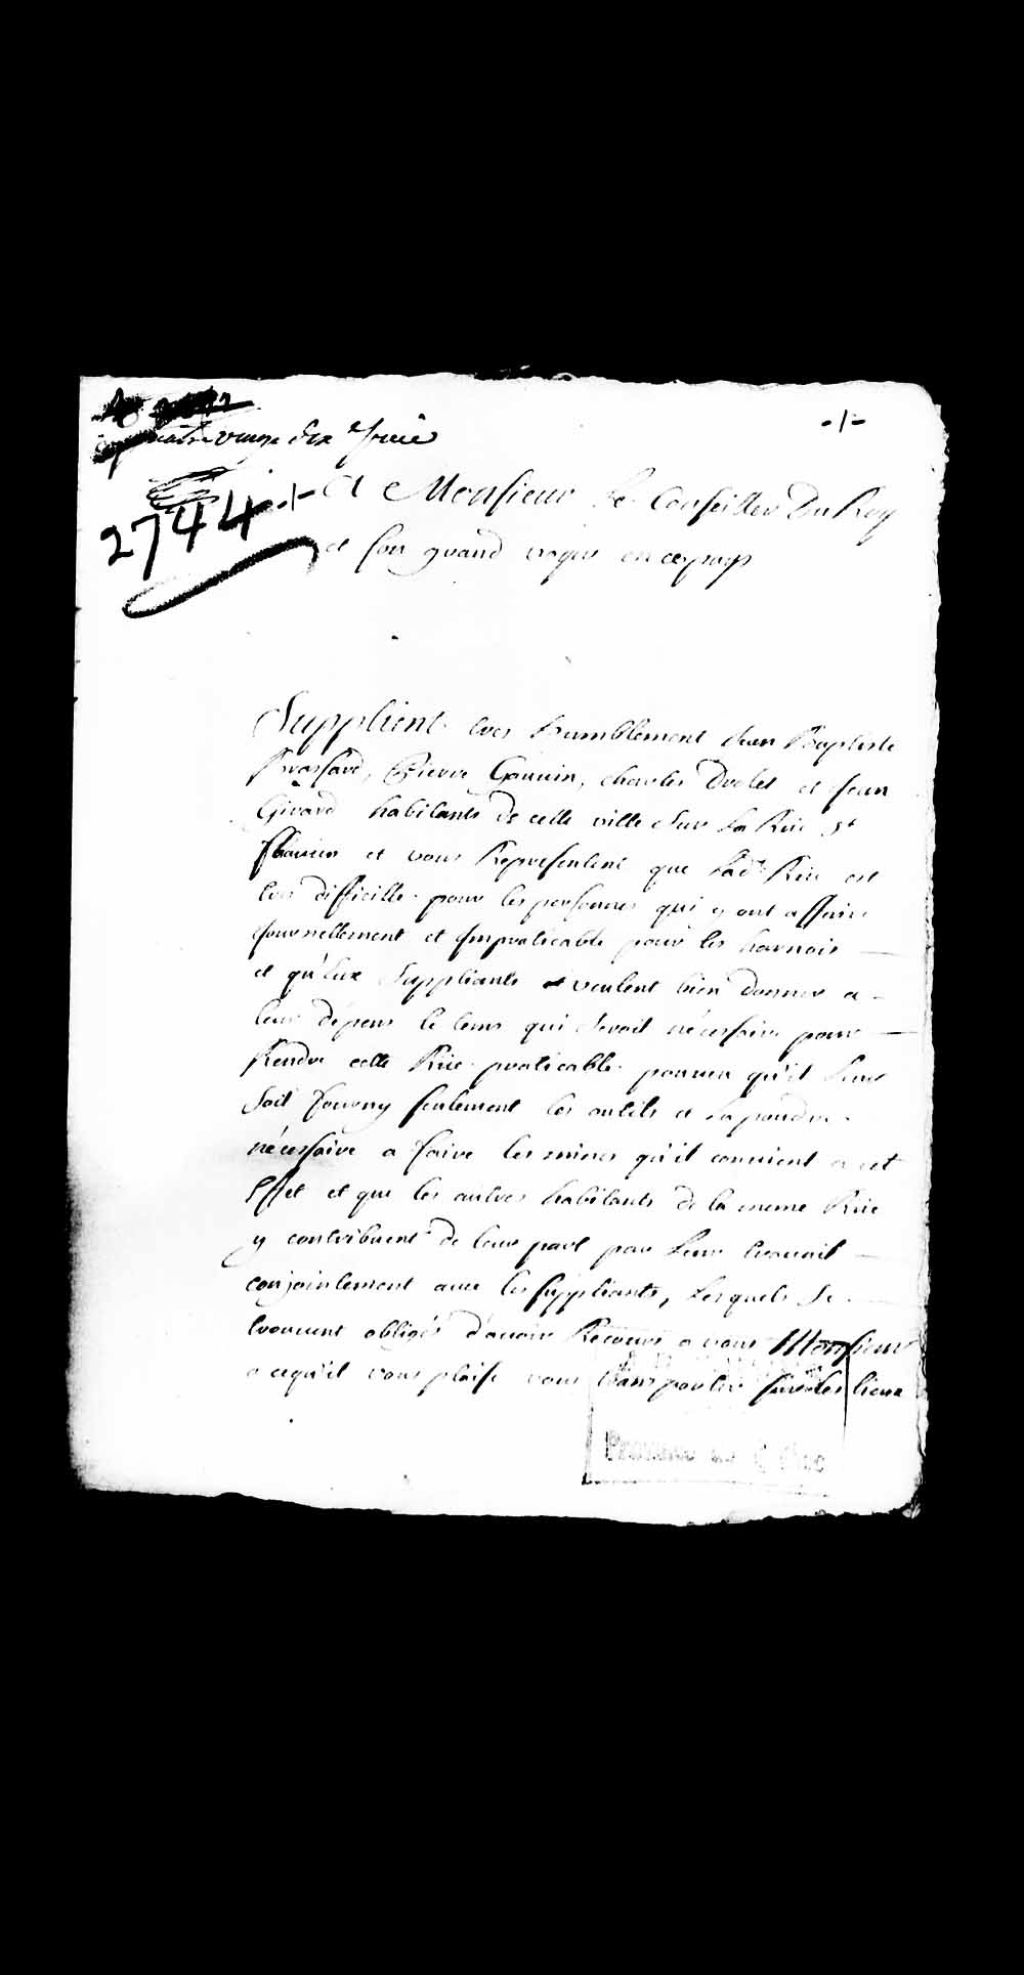 quatre vingt dix
-/-
2744
A Monsieur Le Conseiller Du Roy
et son grand voyer en ce pays
Supplient tres humblement Jean Baptiste
Brassard, Pierre Gauvin, charles Drolet et Jean
Girard habitants de cette ville Sur La Rue St
flavien et vous Representent que Lade Rue est
tres difficille pour les personnes qui y ont affaire
Journellement et Impraticable pour les harnois
et qu'Eux Suppliants veulent bien donner a
leur dépens le tems qui Serait nécessaire pour
Rendre cette Rue praticable pourvu qu'il Leur
Soit fourny seulement les outils et La poudre
nécessaire a faire les mines qu'il convient a cet
Effet et que les autres habitants de la meme Rue
y contribuent de leur part par Leur travail
conjointement avec les suppliants, Lesquels Se
trouvent obligés d'avoir Recours a vous Monsieur
a cequ'il vous plaise vous transporter sur les lieux
Province de Québec